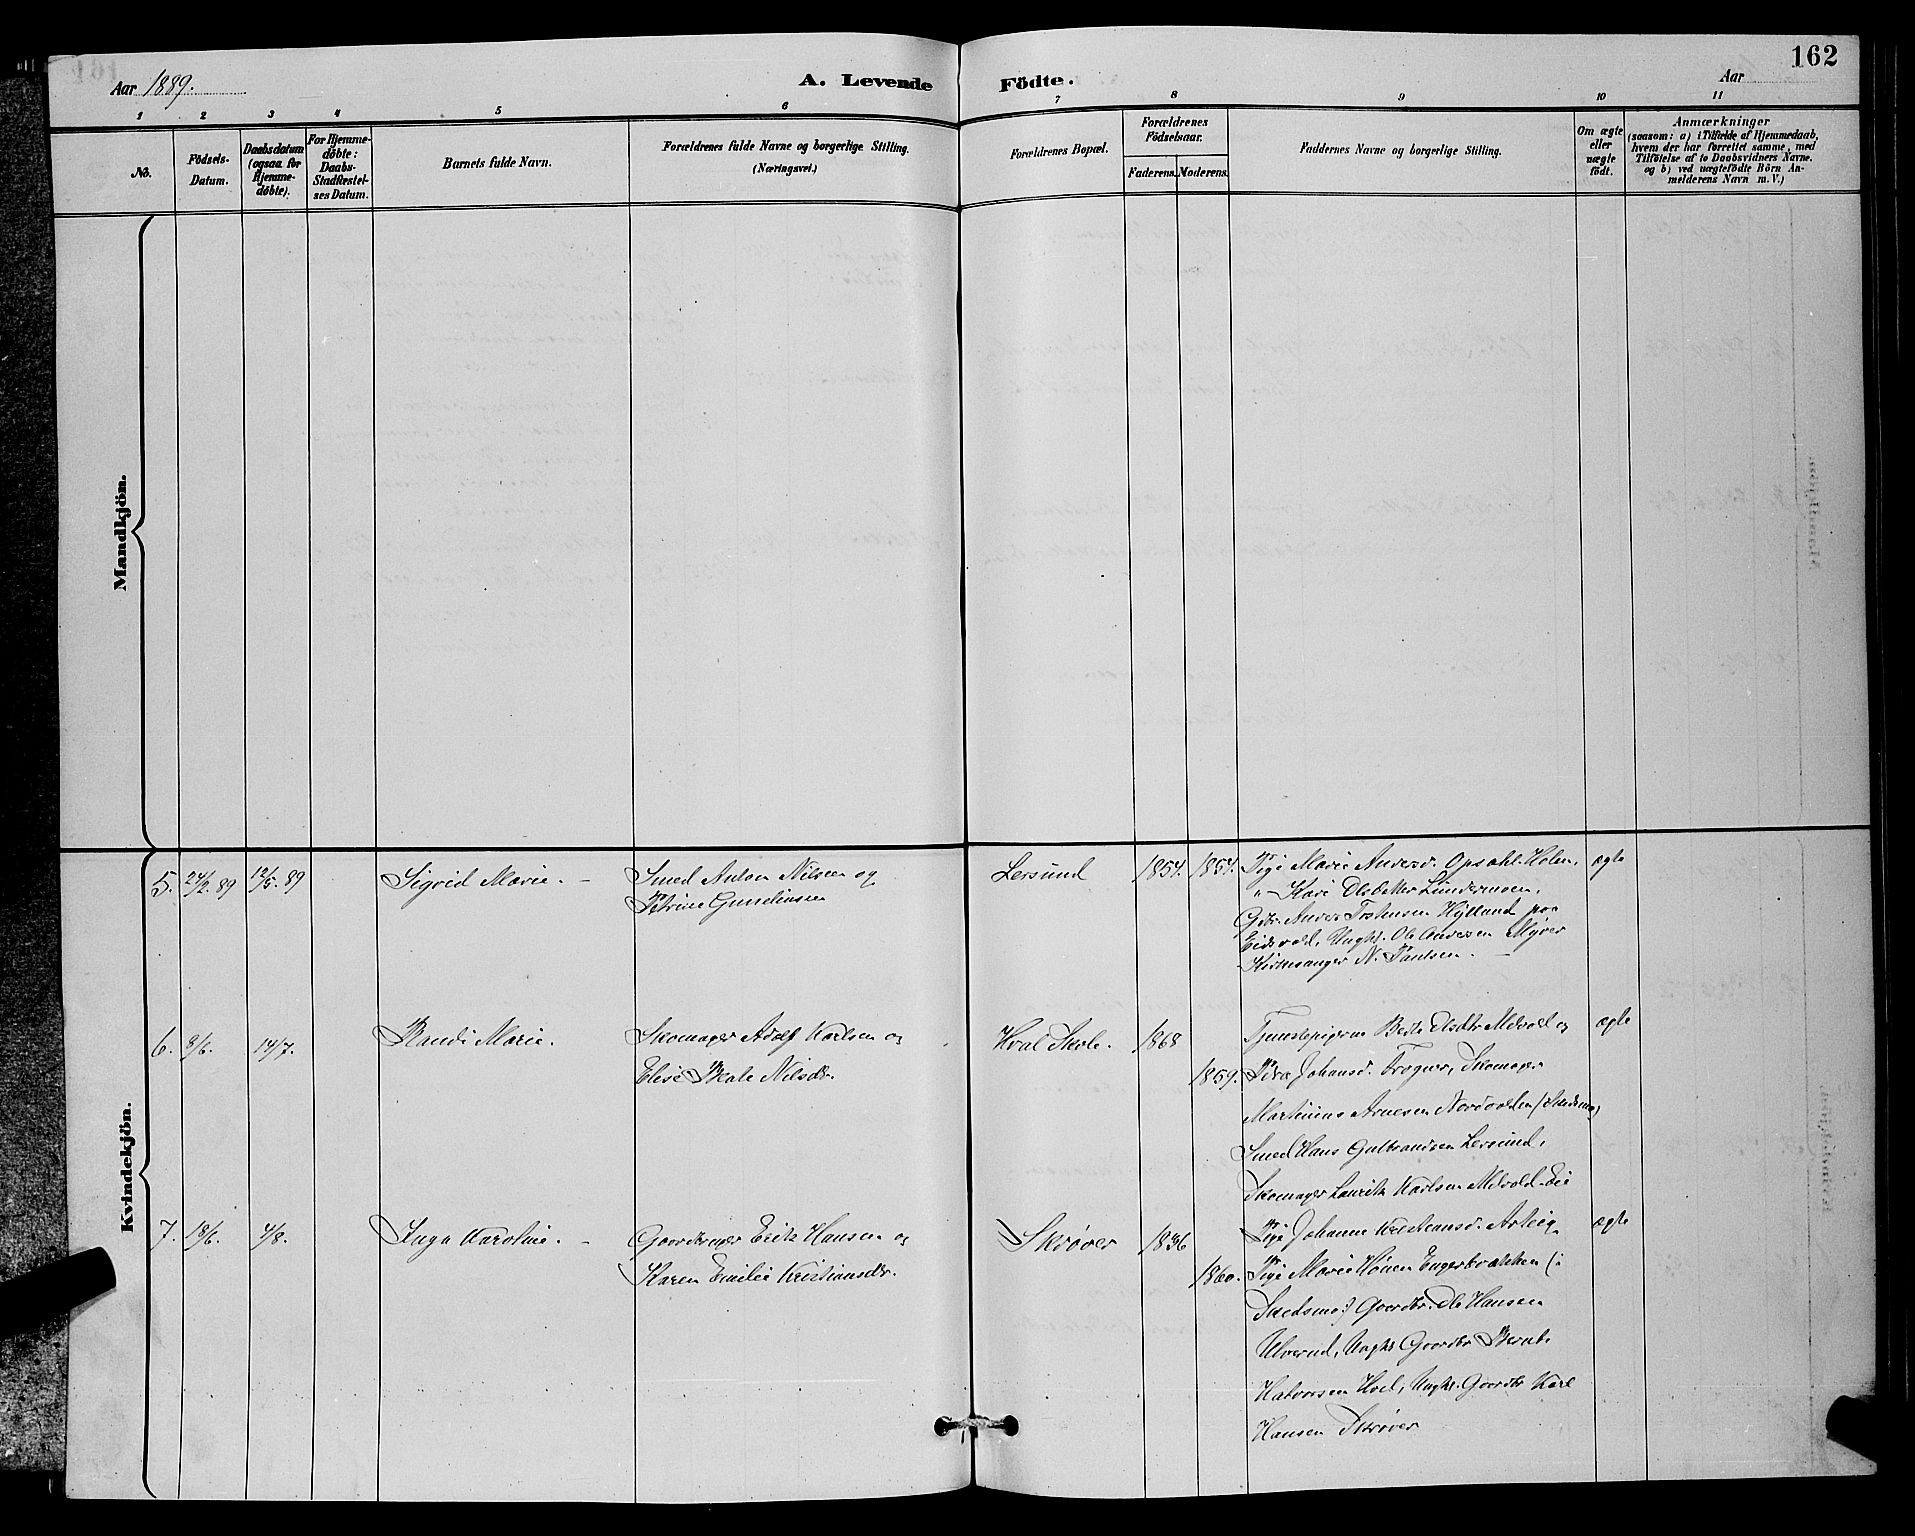 162
Aar 1889. A. Levende Födte. Aar
1 2 3 4 5 6 7 8 9 10 11
No.
Födsels-
Datum.
Daabsdatum
(ogsaa for
Hjemme-
döbte).
For Hjemme-
döbte:
Daabs-
Stadfæstel-
ses Datum.
Barnets fulde Navn.
Forældrenes fulde Navne og borgerlige Stilling.
(Næringsvei.)
Forældrenes Bopæl.
Forældrenes
Födselsaar.
Faderens. Moderens.
Faddernes Navne og borgerlige Stilling.
Om ægte
eller
uægte
födt.
Anmærkninger
(saasom: a) i Tilfælde af Hjemmedaab,
hvem der har forrettet samme, med
Tilföielse af to Daabsvidners Navne.
og b) ved uægtefödte Börn An-
melderens Navn m. V.)
Mandkjön.
Kvindekjön.
5. 24/2. 89 12/5. 89 Sigrid Marie. –
Smed Anton Nilsen og
Petrine Gundersen
Lersund 1854. 1854.
Pige Marie Andersd. Opsahl Holm,
" Kari Olsdatter Lundermoen,
Gdbr. Anders Torstensen Hylland paa
Eidsvold, Ungk. Ole Andersen Myrer
Kirkesanger N. Paulsen. –
ægte
6. 8/6. 14/7. Randi Marie.
Skomager Adolf Karlsen og
Elise Beate Nilsdr.
Hval Skole. 1868
1859.
Tjenestepigerne Berte Olsdtr Melvold og
Petra Johansd. Frogner, Skomager
Martinius Arnesen Nordvolden (Skedsmo)
Smed Hans Gulbrandsen Lersund,
Skomager Laurits Karlsen Melvold-Eie
ægte
7. 18/6. 4/8. Inga Karoline. –
Gaardbruger Erik Hansen og
Karen Emilie Kristiansdr.
Skrøver 1836
1860.
Pige Johanne Kristiansd. Arteig
Pige Marie Hønen Engerbrakken (i
Skedsmo) Gaardbr. Ole Hansen
Ulverud, Ungk. Gaardbr Bernt
Halvorsen Hvel, Ungk. Gaardbr Karl
Hansen Skrøver
ægte